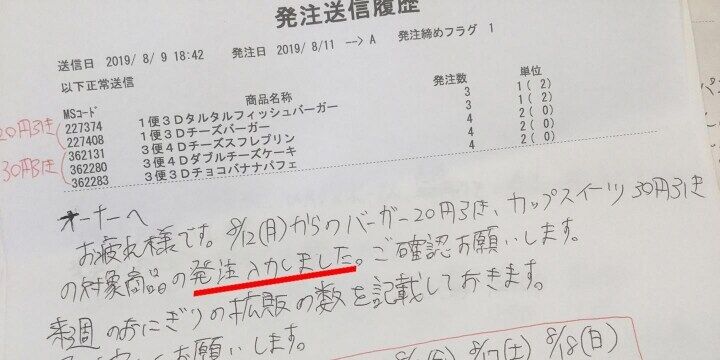 発注送信履歴
送信日 2019/ 8/ 9 18:42 発注日 2019/ 8/11 ---> A 発注締めフラグ 1
以下正常送信
MSコード 商品名称 発注数 単位
20円引き
227374 1便3Dタルタルフィッシュバーガー 3 1( 2)
227408 1便3Dチーズバーガー 3 1( 2)
30円引き
362131 3便4Dチーズスフレプリン 4 2( 0)
362280 3便4Dダブルチーズケーキ 4 2( 0)
362283 3便3Dチョコバナナパフェ 4 2( 0)
オーナーへ
お疲れ様です。8/12(月)からのバーガー20円引き、カップスイーツ30円引き
の対象商品の発注入力しました。ご確認お願いします。
来週のおにぎりの拡販の数を記載しておきます。
お願いします。
8/17(土) 8/18(日)